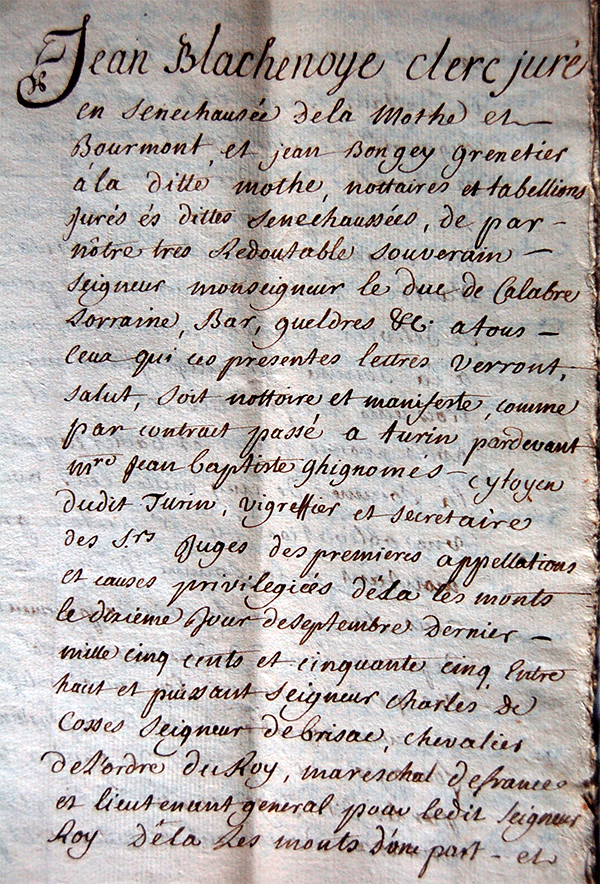 Jean Blachenoye clerc juré
en senechausée dela Mothe et
Bourmont, et jean Bongey grenetier
à la ditte mothe, nottaires et tabellions
jurés és dittes senechaussées, de par -
nôtre tres Redoutable souverain -
seigneur monseigneur le duc de Calabre
Lorraine, Bar, gueldres &c: a tous -
ceux qui ces presentes lettres verront,
salut, soit nottoire et manifeste, comme
par contract passé a turin pardevant
mre jean baptiste ghignomés - cytoyen
dudit Turin, vigreffier et secretaire
des srs Juges des premieres appellations
et causes privilegiées dela les monts
le dixiéme Jour de septembre dernier -
mille cinq cents et cinquante cinq, Entre
haut et puissant seigneur charles de
Cosses seigneur de brisac, chevalier
de L'ordre du Roy, mareschal de france
et lieutenant general pour ledit seigneur
Roy dela Les monts d'une part - et